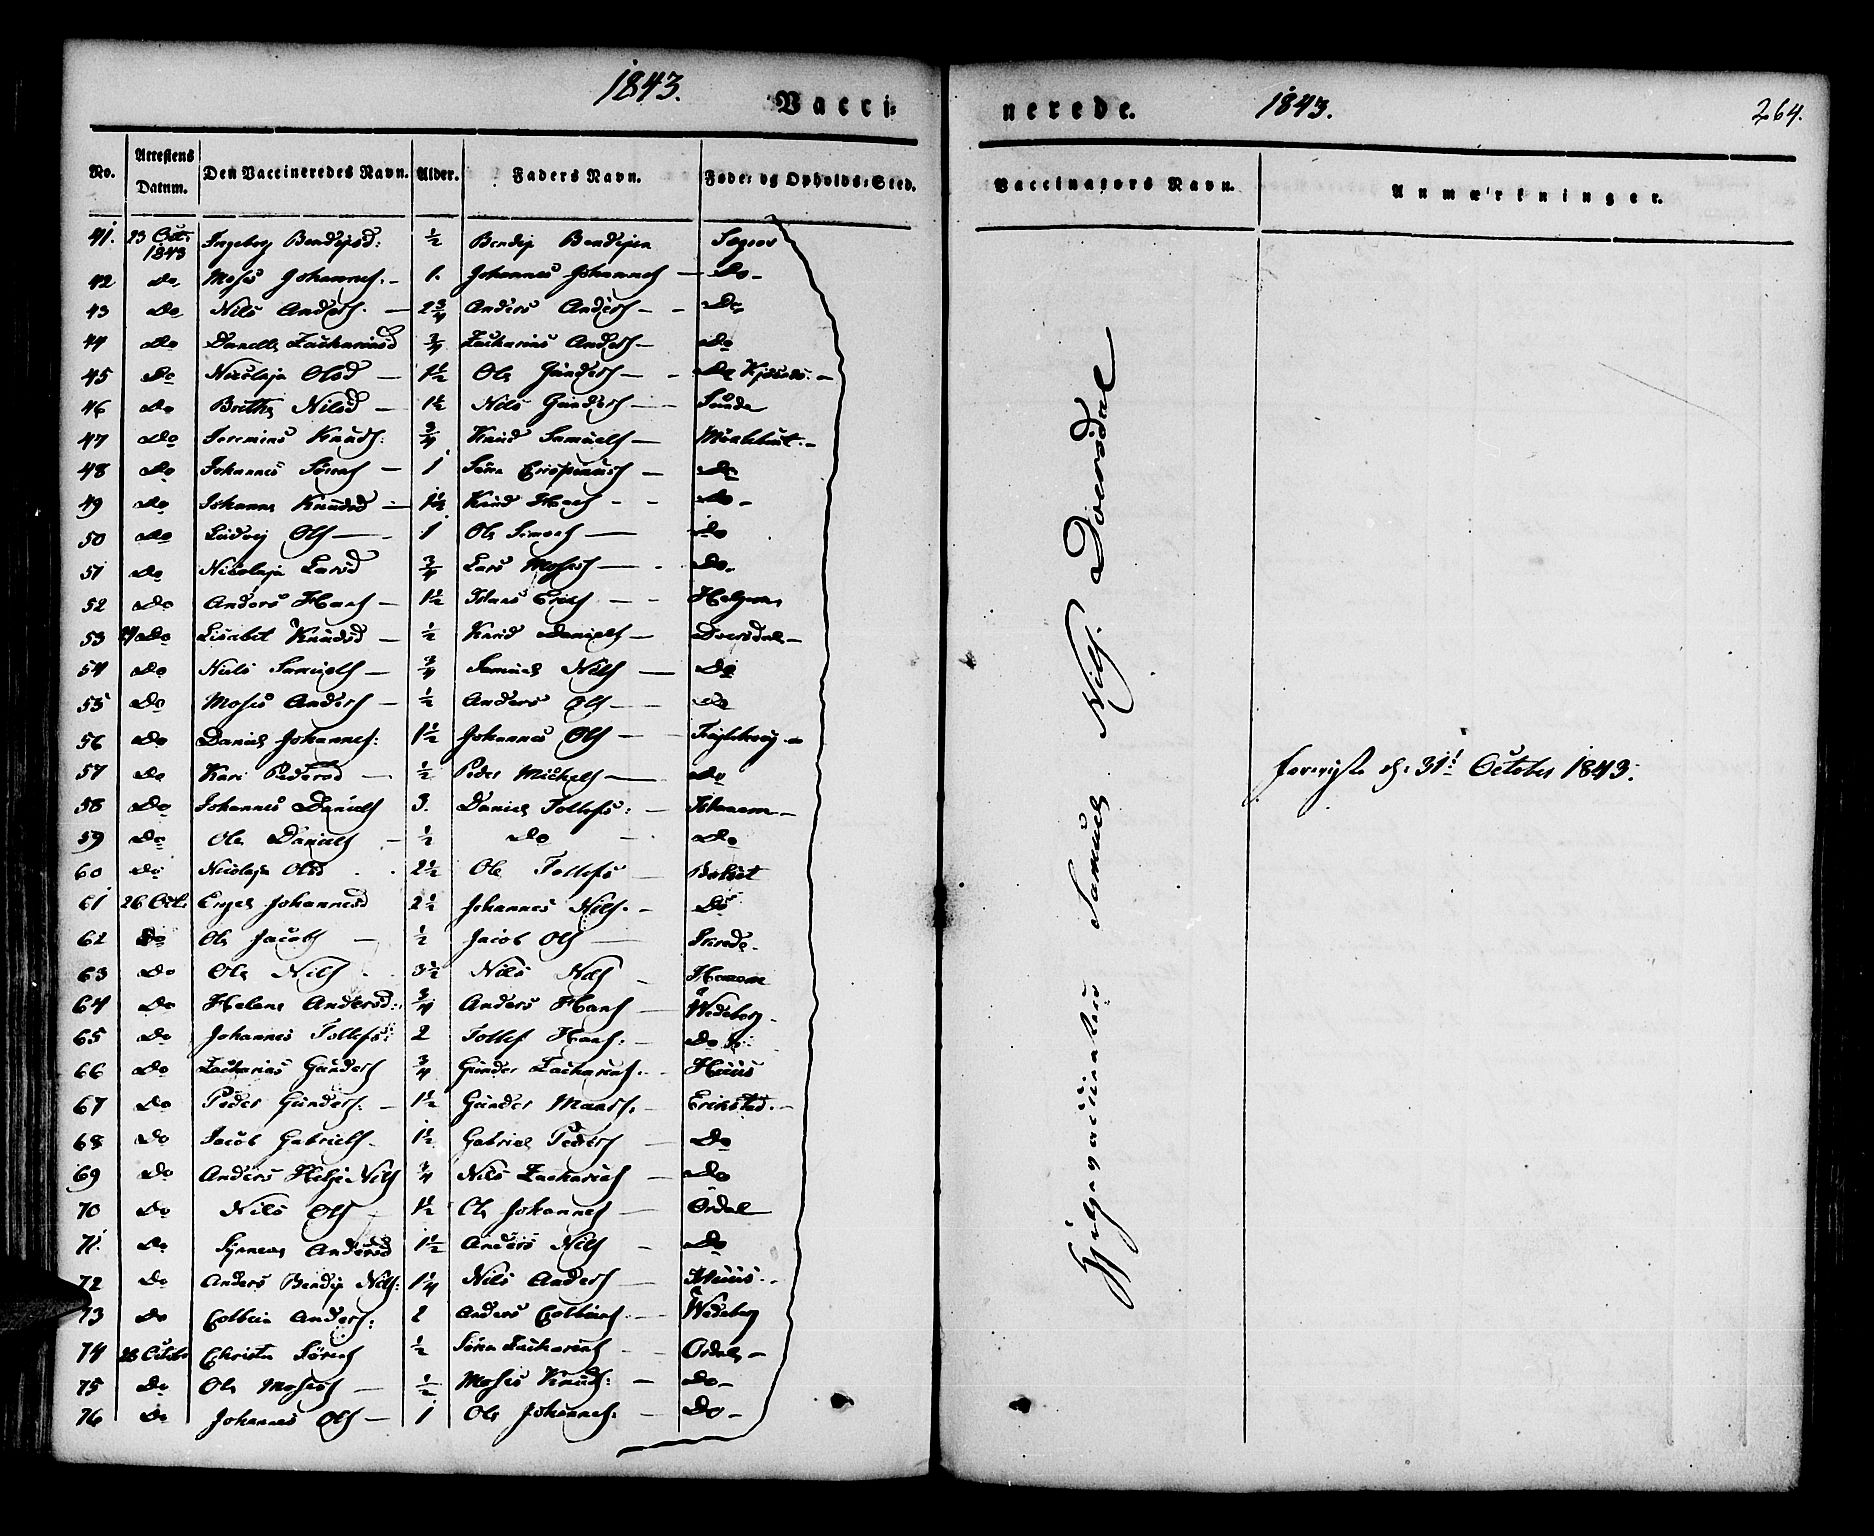 1843.
Vacci-
No. Attestens Datum. Den Vaccineredes Navn. Alder. Faders Navn. Føde- og Opholds-Sted.
41. 23 Oct: 1843 Ingeborg Bendixsd: ½ Bendix Bendixen
42 Do Moses Johannes. – 1. Johannes Johannes – Do –
43 Do Nils Anders. – 2¾ Anders Anders – – Do
44 Do Zachariasd ¾ Zacharias Anders – Do
45 Do Nicolaja Olsd – 1½ Ole Gunders – – Do
46 Do Brithe Nilsd – 1½ Nils Gunders – Sunde
47 Do Jeremias Knuds: ¾ Knud Samuels –
48 Do Johannes Sørens – 1 Søren – Do
49 Do Johanne Knudsd – 1½ Knud Hans – – Do –
50 Do Ludvig Ols – 1 Ole Simons – Do
51 Do Nicolaja Larsd ¾ Lars Moses – Do.
52 Do Anders Hans – 1½ Hans Erichs – –
53 24 Do Lisabet Knudsd – ½ Knud Daniels – Doersdal –
54 Do Niels Samuels – ¾ Samuel Nils – Do
55 Do Moses Anders – ½ Anders Ols – – Do
56 Do Daniel Johannes: 1½ Johannes Ols – –
57 Do Kari Pedersd – ½ Peder Michels – Do
58 Do Johannes Daniels 3. Daniel Tollefs: –
59 Do Ole Daniels – ½ Do – Do
60 Do Nicolaja Olsd 2½ Ole Tollefs –
61 26 Oct. Engel Johannesd 2½ Johannes Nils. – Do
62 Do Ole Jacobs – ½ Jacob Ols –
63 Do Ole Nils 3½ Nils Nils
64 Do Helene Andersd: ¾ Anders Hans – Wedeberg –
65 Do Johannes Tollefs: 2 Tollef Hans: – Do
66 Do Zacharias Gunders ¾ Gunder Zacharias. – Huus
67 Do Peder Gunders. – 1½ Gunder – Erikstad. –
68 Do Jacob Gabriels 1½ Gabriel Peders – Do
69 Do Anders Helje Nils ¾ Nils Zacharias – Do
70 Do Nils Ols – 1½ Ole Johannes – Ordal
71. Do Andersd 1½ Anders Nils – Do
72 Do Anders Bendix Nils: 1¼ Nils Anders – Huus.
73 Do Colbein Anders: 2 Anders Colbeins. – Wedeberg
74 28 Octobr Christen Sørens ½ Søren Zacharias – Ordal –
75 Do Ole Moses – ½ Moses Knuds: – Do –
76 Do Johannes Ols – 1 Ole Johannes. – Do –
nerede.
1843.
264.
Vaccinators Navn. Anmærkninger.
Hjelpevaccinateur Samuel Nils. Doersdal
31t October 1843.